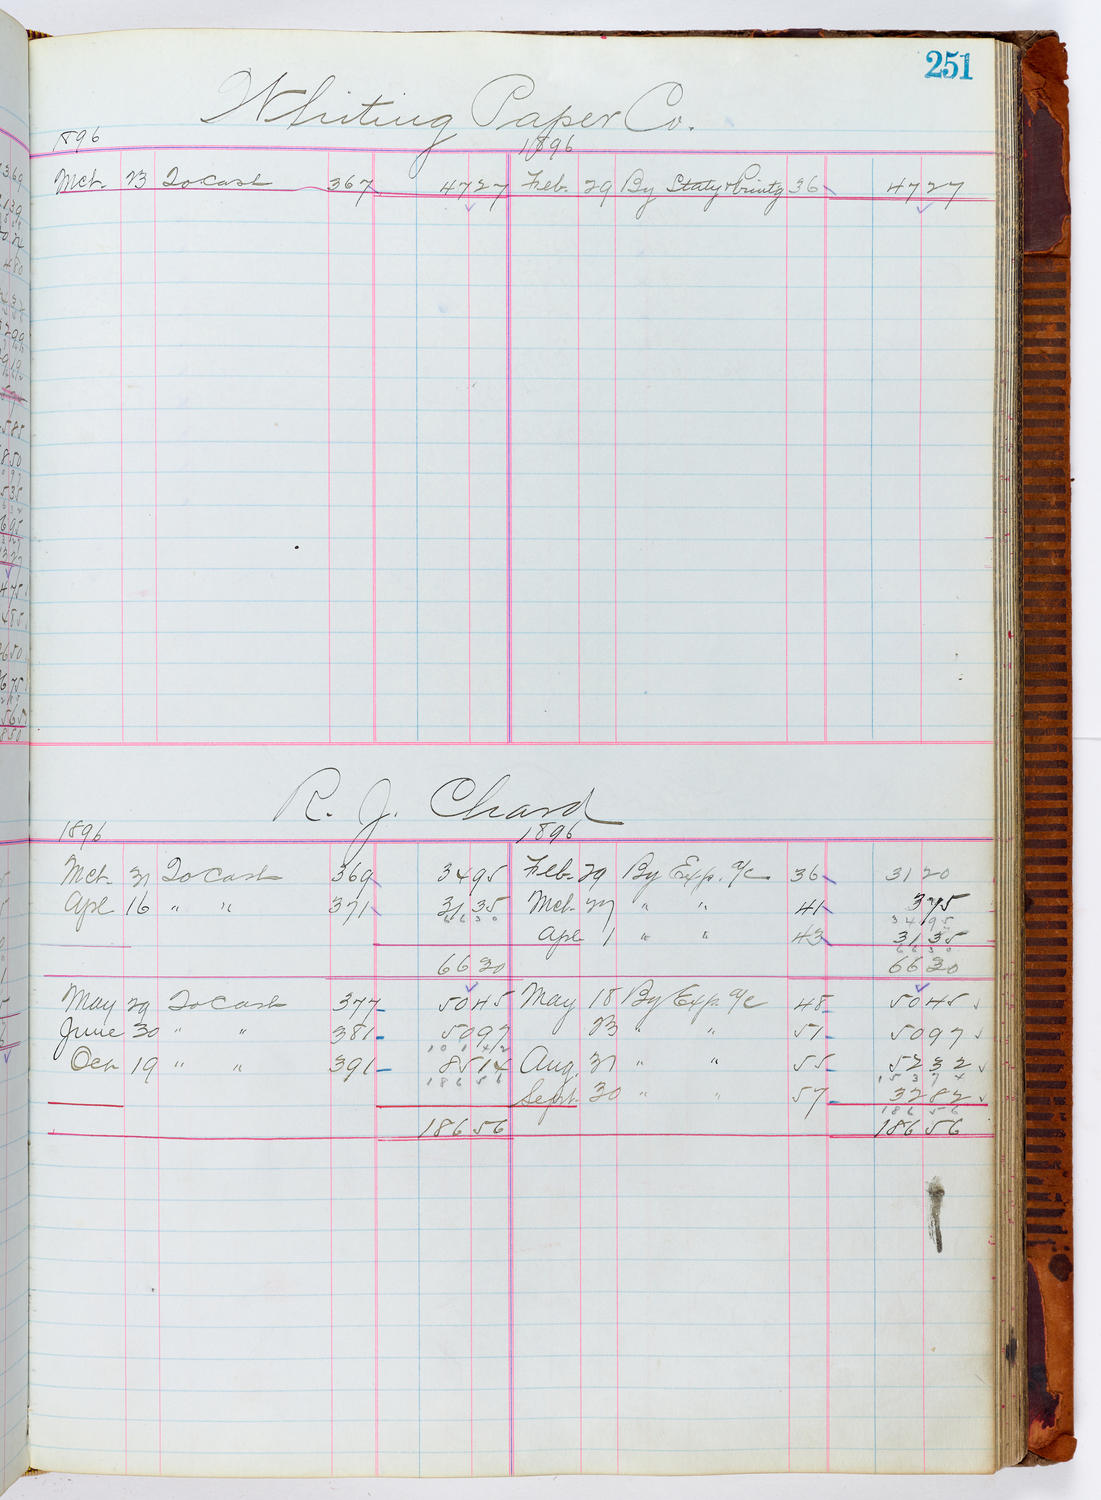 251
Whiting Paper Co.
1896 1896
Mch. 23 To Cash 367 47 27 Feb. 29 By Staty & Printg 36 47 27
R. J. Chard
1896 1896
Mch. 31 To Cash 369 34 95 Feb. 29 By Exp. a/c 36 31 20
Apl 16 " " 371 31 35 Mch. 27 " " 41 3 75
66 30 34 95
Apl 1 " " 43 31 35
66 30
66 30 66 30
May 29 To Cash 377 50 45 May 18 By Exp. a/c 48 50 45
June 30 " " 381 50 97 23 " " 51 50 97
101 42
Oct 19 " " 391 85 14 Aug. 31 " " 55 52 32
186 56 153 74
Sept. 30 " " 57 32 82
186 56
186 56 186 56